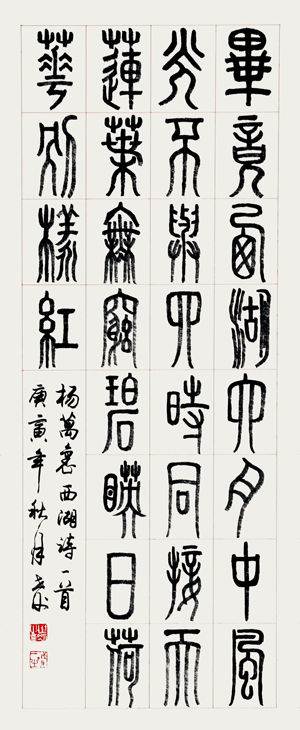 畢竟西湖六月中風
光不與四時同接天
蓮葉無窮碧映日荷
華別樣紅
楊萬裏西湖詩一首
庚寅年秋